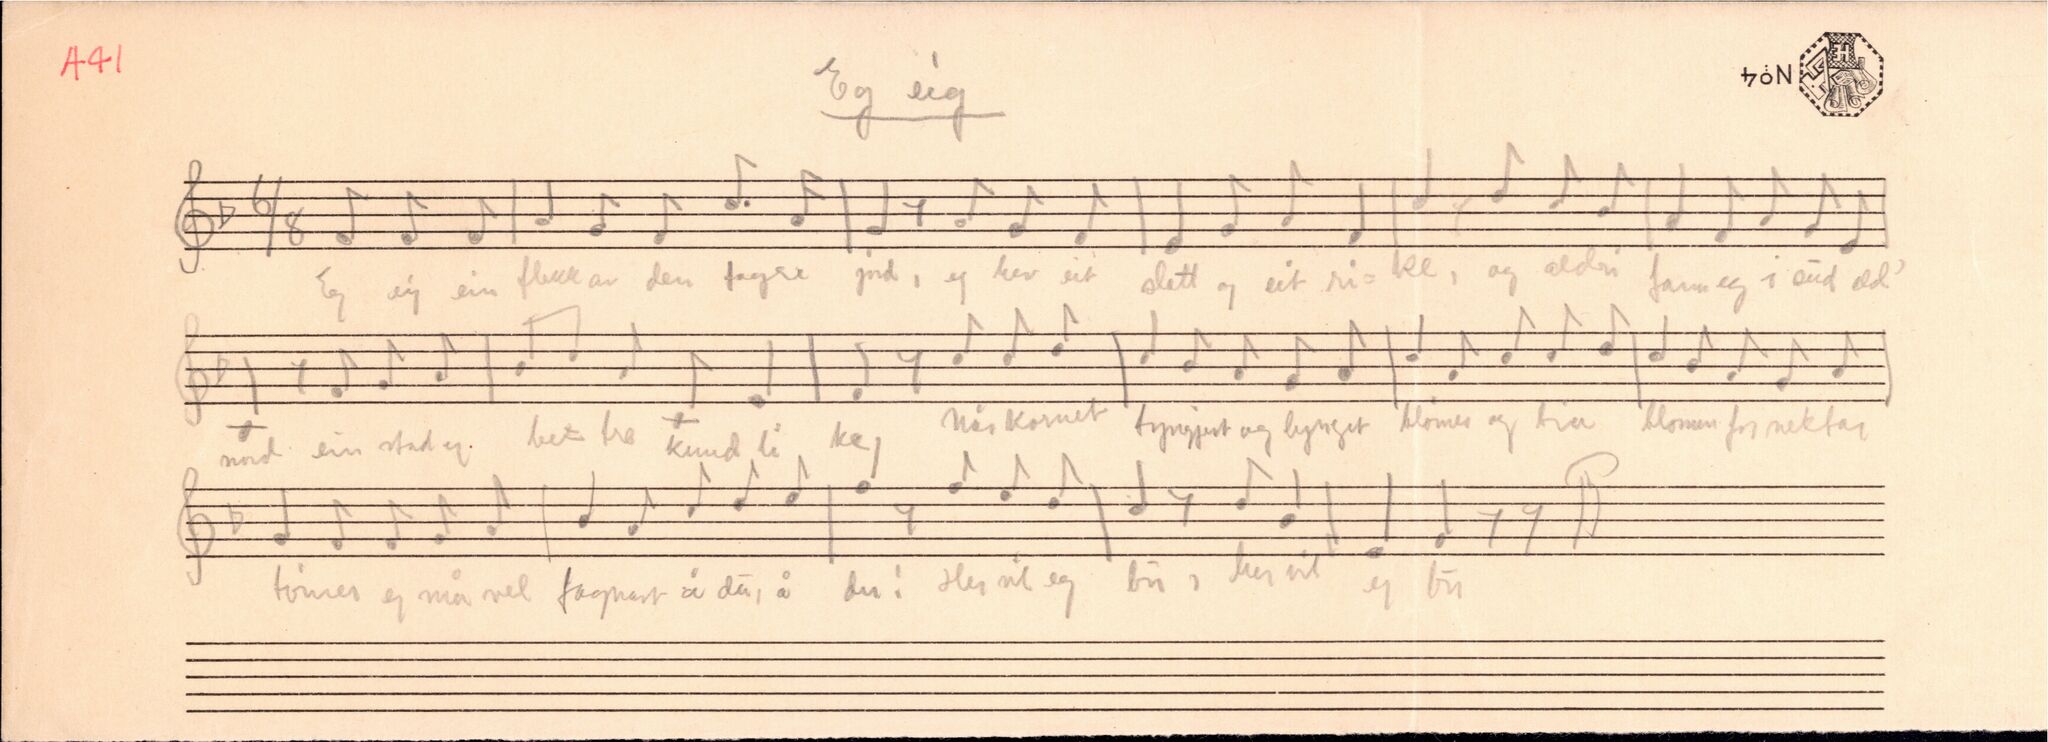 A41
Eg eig
No4
6/8
Eg eig ein flekk av den fagre jord, eg hev eit slett og eit ri-ke, og aldri fann eg i sud el'
nord ein stad eg be-tre kund li ke,
Når kornet tyngjest og lynget blømer og bia blomen for nektar
tømer eg må vel fagnast å du, å du! Her vil eg bu, her vil eg bu